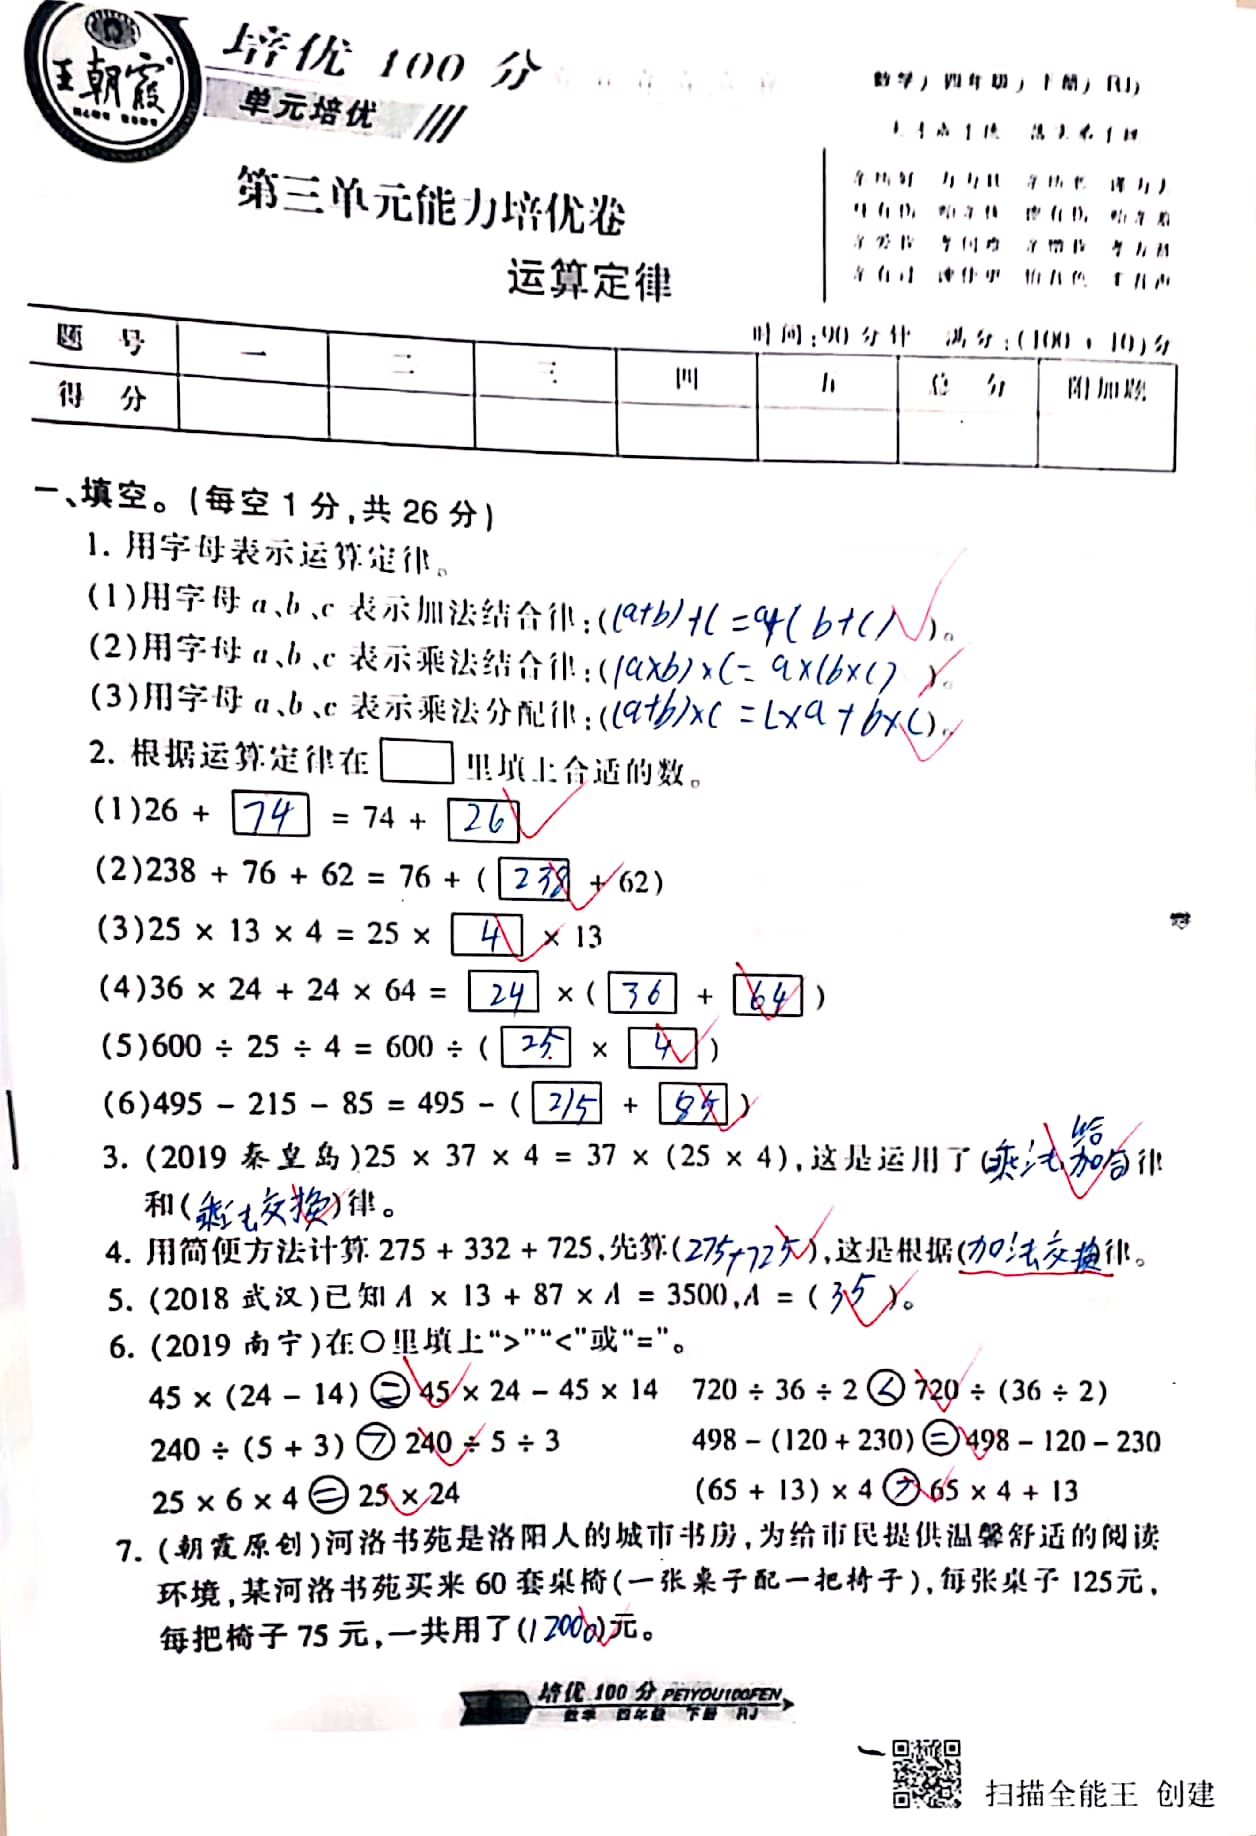 王朝霞
培优 100 分
单元培优
数学 四年级 下册 RJ
第三单元能力培优卷
运算定律
时间:90 分钟 满分:(100+10)分
题 号 一 二 三 四 五 总 分 附加题
得 分
一、填空。(每空 1 分,共 26 分)
1. 用字母表示运算定律。
(1)用字母 a、b、c 表示加法结合律:((a+b)+c=a+(b+c))。
(2)用字母 a、b、c 表示乘法结合律:((a×b)×c=a×(b×c))。
(3)用字母 a、b、c 表示乘法分配律:((a+b)×c=c×a+b×c)。
2. 根据运算定律在□里填上合适的数。
(1)26 + 74 = 74 + 26
(2)238 + 76 + 62 = 76 + (238 + 62)
(3)25 × 13 × 4 = 25 × 4 × 13
(4)36 × 24 + 24 × 64 = 24 × (36 + 64)
(5)600 ÷ 25 ÷ 4 = 600 ÷ (25 × 4)
(6)495 - 215 - 85 = 495 - (215 + 85)
3. (2019 秦皇岛)25 × 37 × 4 = 37 × (25 × 4),这是运用了(乘法结合)律
和(乘法交换)律。
4. 用简便方法计算 275 + 332 + 725,先算(275+725),这是根据(加法交换)律。
5. (2018 武汉)已知 A × 13 + 87 × A = 3500,A = (35)。
6. (2019 南宁)在○里填上“>”“<”或“=”。
45 × (24 - 14) = 45 × 24 - 45 × 14 720 ÷ 36 ÷ 2 < 720 ÷ (36 ÷ 2)
240 ÷ (5 + 3) > 240 ÷ 5 ÷ 3 498 - (120 + 230) = 498 - 120 - 230
25 × 6 × 4 = 25 × 24 (65 + 13) × 4 > 65 × 4 + 13
7. (朝霞原创)河洛书苑是洛阳人的城市书房,为给市民提供温馨舒适的阅读
环境,某河洛书苑买来 60 套桌椅(一张桌子配一把椅子),每张桌子 125元,
每把椅子 75 元,一共用了(12000)元。
培优 100 分 PEIYOU100FEN
数学 四年级 下册 RJ
扫描全能王 创建